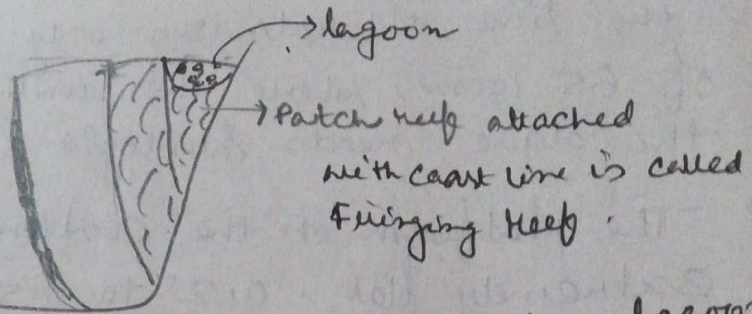 lagoon
Patch reef attached
with coast line is called
Fringing reef.
lagoon